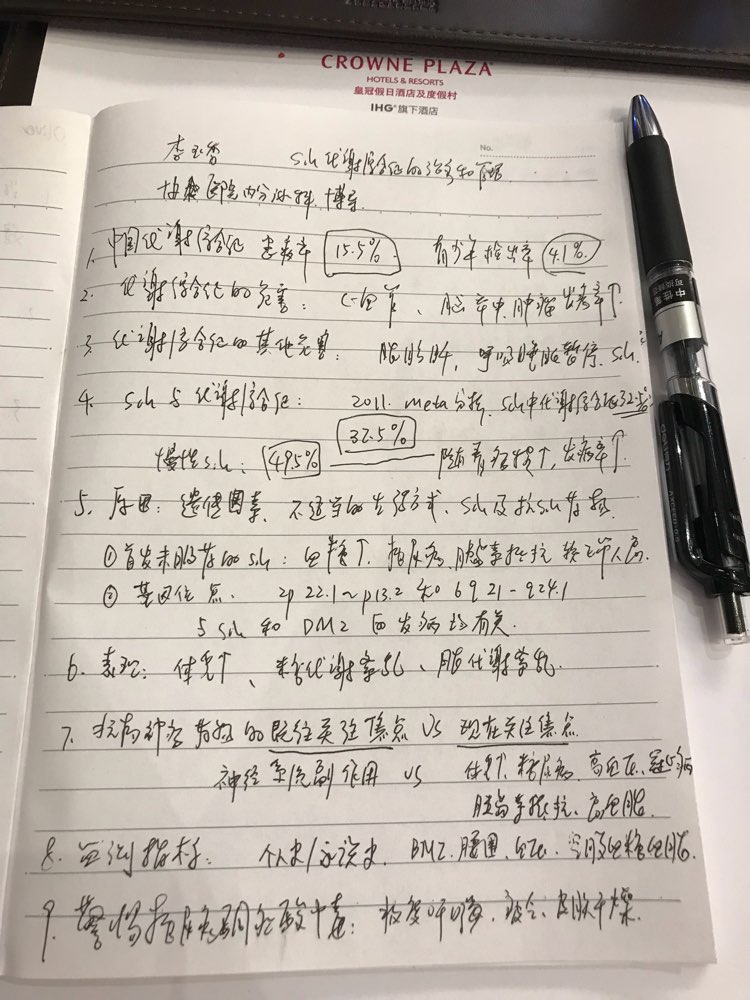 CROWNE PLAZA
HOTELS & RESORTS
皇冠假日酒店及度假村
IHG® 旗下酒店
No.
李玉 Sch代谢综合征的诊和
医院内分泌科 博导
1. 中国代谢综合征 患病率 15.5% 青少年检出率 4.1%.
2. 代谢综合征的危害: 心血管、脑卒中、肿瘤发病率↑
3. 代谢综合征的其他危害: 脂肪肝, 呼吸睡眠暂停, Sch.
4. Sch与代谢综合征: 2011. meta分析, Sch中代谢综合征32.5%
32.5%
慢性Sch: 49.5% 随着病程↑, 发病率↑
5. 原因: 遗传因素、不适当的生活方式、Sch及抗Sch药物
①首发未服药的Sch: 血糖↑, 糖尿病, 胰岛素抵抗 较正常人高.
② 基因位点. 2p 22.1~p13.2 和 6q 21-q24.1
与Sch和DM2 发病均有关.
6. 表现: 体重↑、糖代谢紊乱、脂代谢紊乱.
7. 抗精神病药物的既往关注焦点 VS 现在关注焦点
神经系统副作用 VS 体重↑, 糖尿病, 高血压, 冠心病
胰岛素抵抗、高血脂.
8. 监测指标: 个人史/家族史. DM2. 腰围. 血压. 空腹血糖血脂.
9. 警惕糖尿病酮症酸中毒: 皮肤干燥.
中性笔
deli